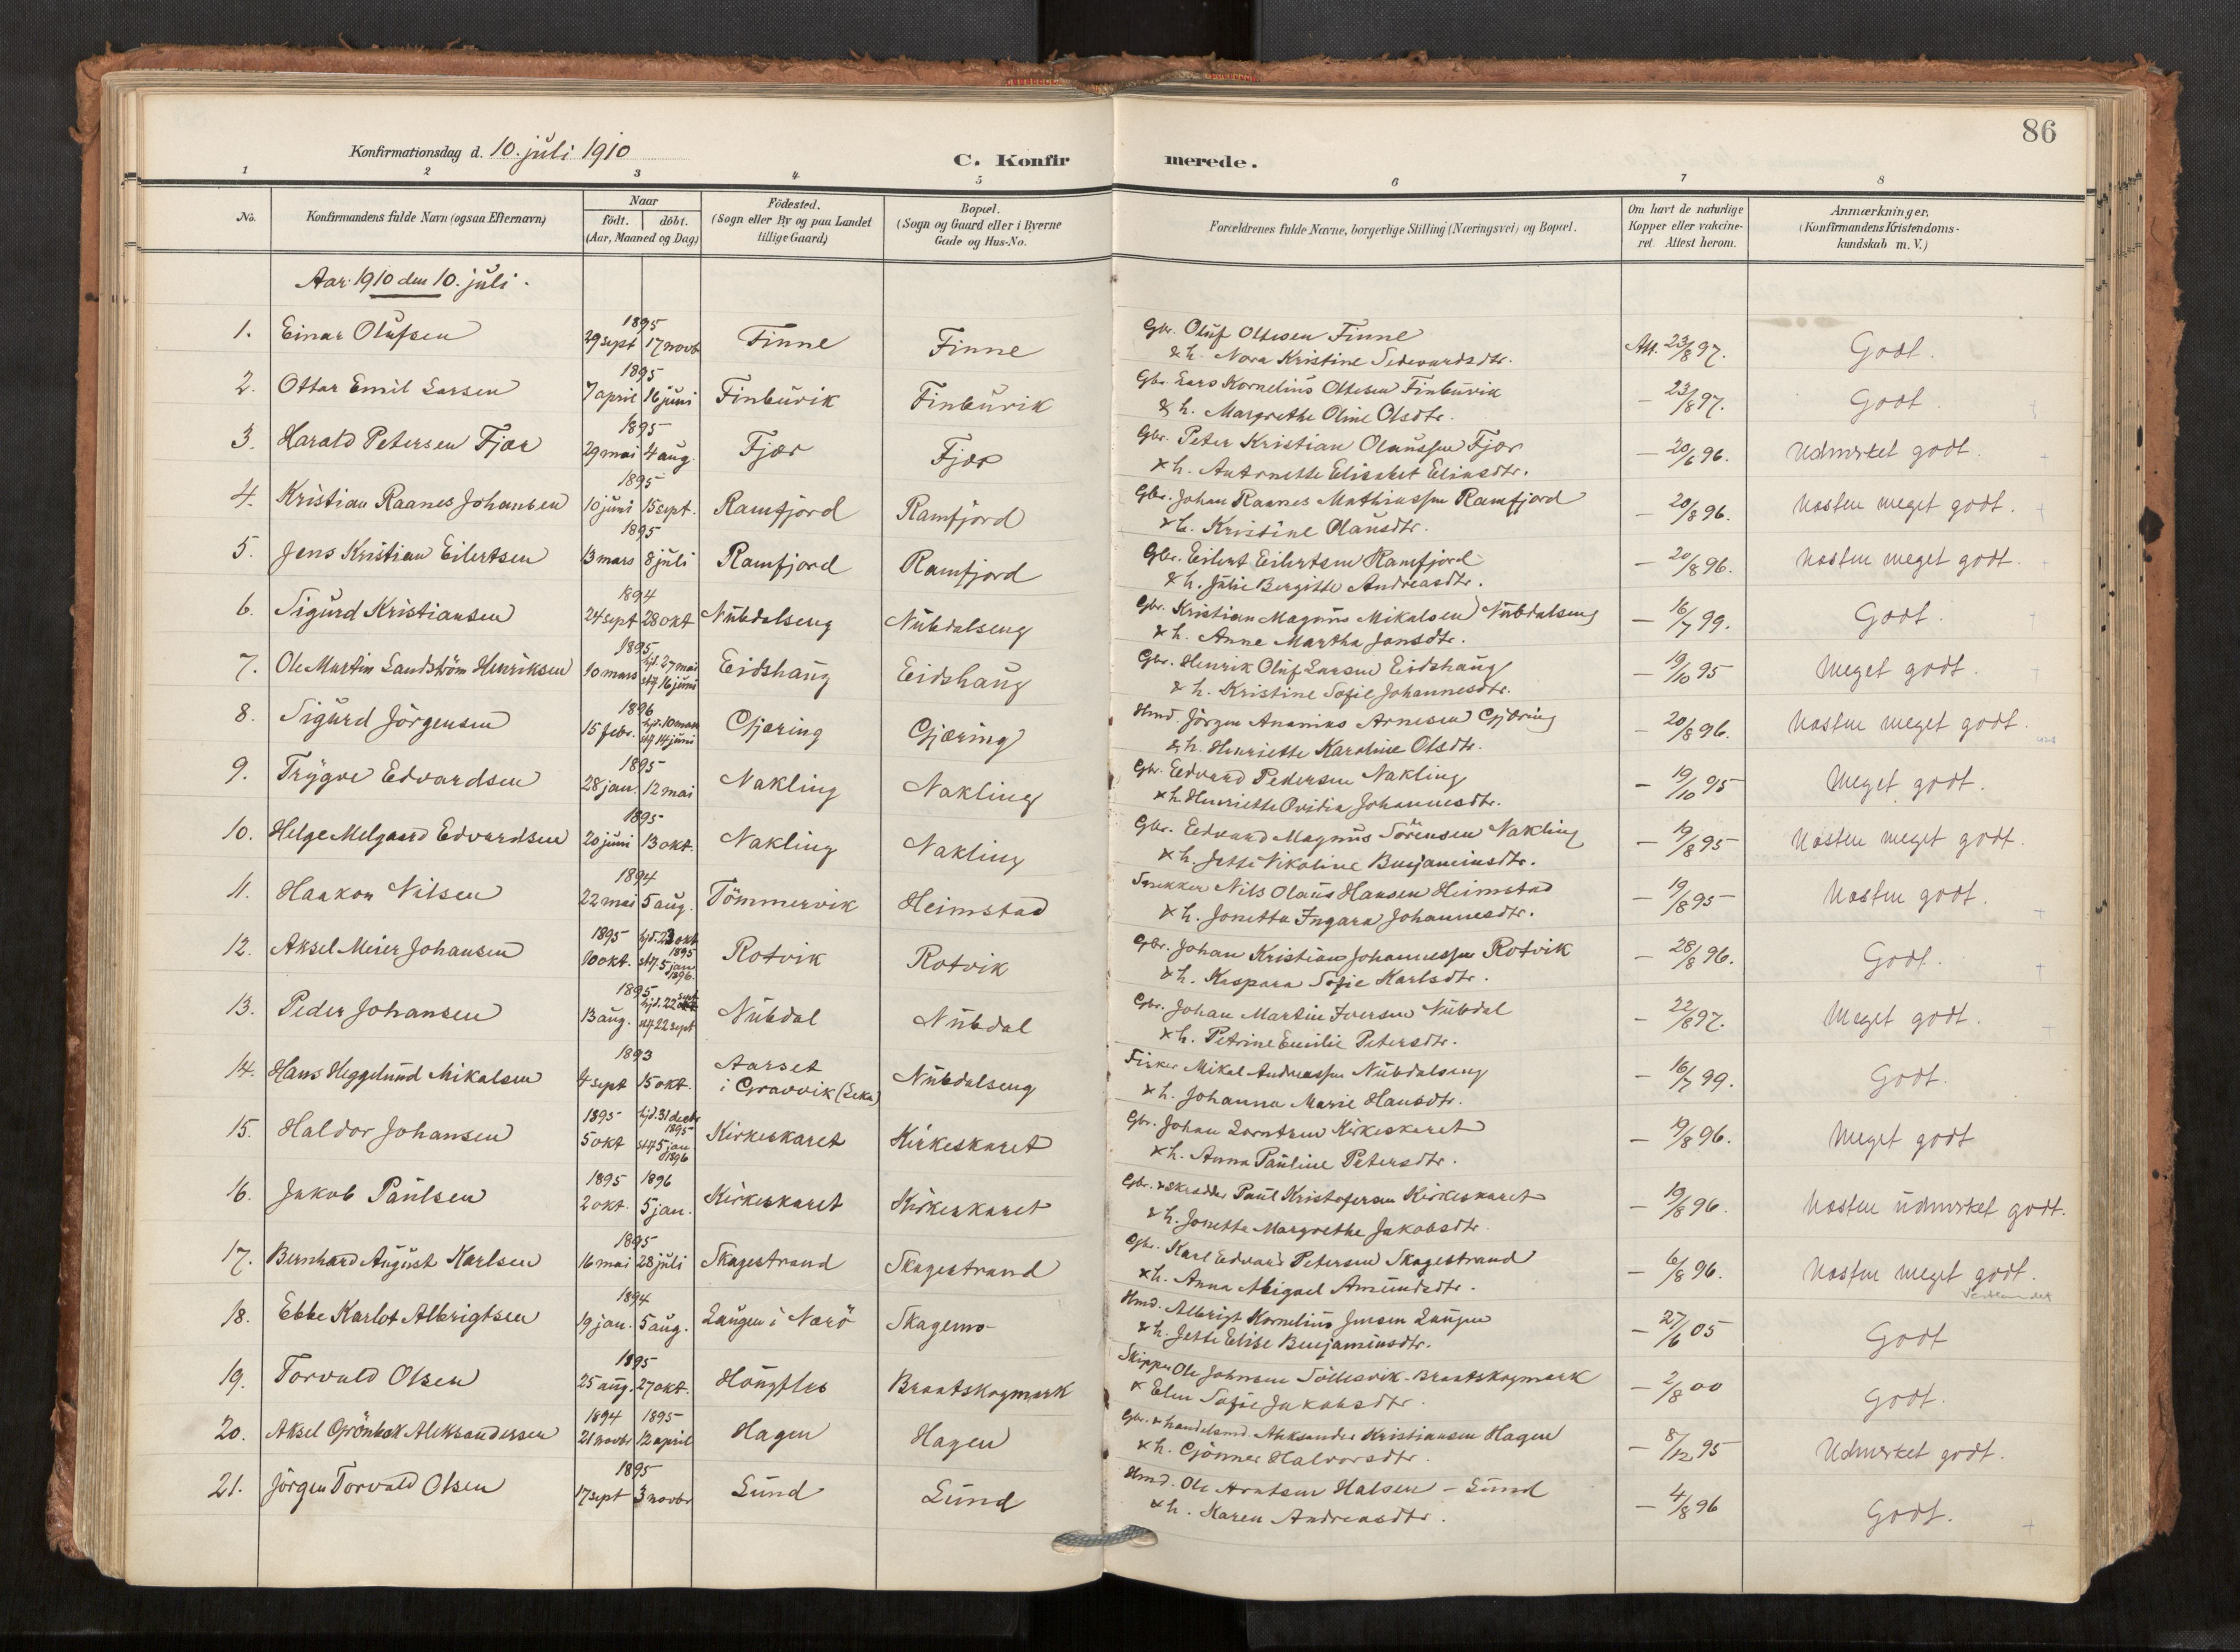 86
Konfirmationsdag d. 10. juli 1910
C. Konfirmerede.
1 2 3 4 5 6 7 8
No. | Konfirmandens fulde Navn (ogsaa Efternavn) | Naar födt. döbt. (Aar, Maaned og Dag) | Födested. (Sogn eller By og paa Landet tillige Gaard) | Bopæl. (Sogn og Gaard eller i Byerne Gade og Hus-No. | Forældrenes fulde Navne, borgerlige Stilling (Næringsvei) og Bopæl. | Om havt de naturlige Kopper eller vakcineret Attest herom. | Anmærkninger. (Konfirmandens Kristendomskundskab m. V.)
Aar 1910 den 10. juli.
1. Einar Olufsen | 1895 29 sept 17 novb | Finne | Finne | Gbr. Oluf Ottesen Finne | Att. 23/8 97. | Godt.
& h. Nora Kristine Sedevardsdtr.
2. Ottar Emil Larsen | 1895 7 april 16 juni | Finbürik | Finbürik | Gbr. Lars Kornelius Ottesen Finbürik | – 23/8 97. | Godt.
& h. Margrethe Oline Olsdtr.
3. Harald Petersen Fjær | 1895 29 mai 4 aug. | Fjær | Fjær | Gbr. Peter Kristian Olaussen Fjær | – 20/6 96. | Udmrket godt.
& h. Antonette Elisabet Eliasdtr.
4. Kristian Raanes Johansen | 1895 10 juni 15 sept. | Ramfjord | Ramfjord | Gbr. Johan Raanes Mathiassen Ramfjord | – 20/8 96. | Næsten meget godt.
& h. Kristine Olausdtr.
5. Jens Kristian Eilertsen | 1895 13 mars 8 juli | Ramfjord | Ramfjord | Gbr. Eilert Eilertsen Ramfjord | – 20/8 96. | Næsten meget godt.
& h. Julie Bergitte Andreasdtr.
6. Sigurd Kristiansen | 1894 24 sept 28 okt | Nübdalseng | Nübdalseng | Gbr. Kristian Magnus Mikalsen Nübdalseng | – 16/7 99. | Godt.
& h. Anne Martha Jonsdtr.
7. Ole Martin Sandström Henriksen | 1895 10 mars hjd. 27 mai stf. 16 juni | Eidshaug | Eidshaug | Gbr. Henrik Oluf Larsen Eidshaug | – 19/10 95 | Meget godt.
& h. Kristine Sofie Johannesdtr.
8. Sigurd Jörgensen | 1896 15 febr. hjd. 10 mars stf. 14 juni | Gjæring | Gjæring | Hmd. Jörgen Ananias Arnesen Gjæring | – 20/8 96. | Næsten meget godt.
& h. Henriette Karoline Olsdtr.
9. Trygve Edvardsen | 1895 28 jan. 12 mai | Nakling | Nakling | Gbr. Edvard Pedersen Nakling | – 19/10 95 | Meget godt.
& h. Henriette Ovidia Johannesdtr.
10. Helge Melgaard Edvardsen | 1895 20 juni 13 okt. | Nakling | Nakling | Gbr. Edvard Magnus Sörensen Nakling | – 19/8 95 | Næsten meget godt.
& h. Jette Nikoline Benjaminsdtr.
11. Haakon Nilsen | 1894 22 mai 5 aug. | Tömmervik | Heimstad | Snekker Nils Olaus Hansen Heimstad | – 19/8 95 | Næsten godt.
& h. Jonetta Ingara Johannesdtr.
12. Aksel Meier Johansen | 1895 10 okt. hjd. 23 okt 1895 stf. 5 jan 1896. | Rotvik | Rotvik | Gbr. Johan Kristian Johannessen Rotvik | – 28/8 96. | Godt.
& h. Kaspara Sofie Karlsdtr.
13. Peder Johansen | 1895 13 aug. hjd. 22 sept stf 22 sept | Nübdal | Nübdal | Gbr. Johan Martin Iversen Nübdal | – 22/8 97. | Meget godt.
& h. Petrine Emilie Petersdtr.
14. Hans Heggelund Mikalsen | 1893 4 sept 15 okt. | Aarset i Gravvik (Leka) | Nübdalseng | Fisker Mikal Andreassen Nübdalseng | – 16/7 99. | Godt.
& h. Johanna Marie Hansdtr.
15. Haldor Johansen | 1895 5 okt hjd. 31 decbr 1895 stf 5 jan 1896 | Kirkeskaret | Kirkeskaret | Gbr. Johan Lorntsen Kirkeskaret | – 19/8 96. | Meget godt
& h. Anna Pauline Petersdtr.
16. Jakob Paulsen | 1895 2 okt. 1896 5 jan. | Kirkeskaret | Kirkeskaret | Gbr. & skrædder Paul Kristofersen Kirkeskaret | – 19/8 96. | Næsten udmrket godt.
& h. Jonetta Margrethe Jakobsdtr.
17. Bernhard August Karlsen | 1895 16 mai 28 juli | Skagestrand | Skagestrand | Gbr. Karl Edvard Petersen Skagestrand | – 6/8 96. | Næsten meget godt.
& h. Anna Abigael Amundsdtr.
18. Ebbe Karlot Albrigtsen | 1894 19 jan. 5 aug. | Laugen i Nærö | Skagemo | Hmd. Albrigt Kornelius Jensen Laugen | – 27/6 05 | Godt
& h. Jette Elise Benjaminsdtr.
19. Torvald Olsen | 1895 25 aug. 27 okt. | Haugfles | Braatskogmark | Skipper Ole Johnsen Söllesvik-Braatskogmark | – 2/8 00 | Godt.
& Elen Sofie Jakobsdtr.
20. Aksel Grönbæk Aleksandersen | 1894 21 novbr 1895 12 april | Hagen | Hagen | Gbr. & handelsmd. Aleksander Kristiansen Hagen | – 8/12 95 | Udmrket godt.
& h. Gjönner Halvorsdtr.
21. Jörgen Torvald Olsen | 1895 17 sept 3 novbr | Lund | Lund | Hmd. Ole Arntsen Halsen – Lund | – 4/8 96 | Godt.
& h. Karen Andreasdtr.